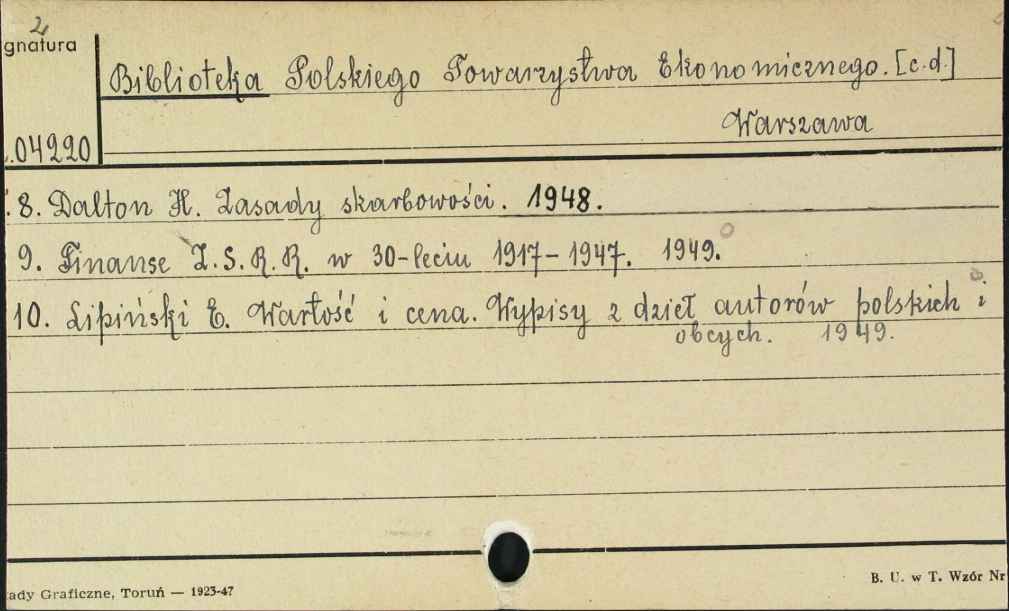 2
gnatura
Biblioteka Polskiego Towarzystwa Ekonomicznego. [c.d.]
Warszawa
.04220
8. Dalton H. Zasady skarbowości. 1948.
9. Finanse Z.S.R.R. w 30-leciu 1917-1947. 1949.
10. Lipiński E. Wartość i cena. Wypisy z dzieł autorów polskich i
obcych. 1949.
ady Graficzne, Toruń — 1923-47
B. U. w T. Wzór Nr